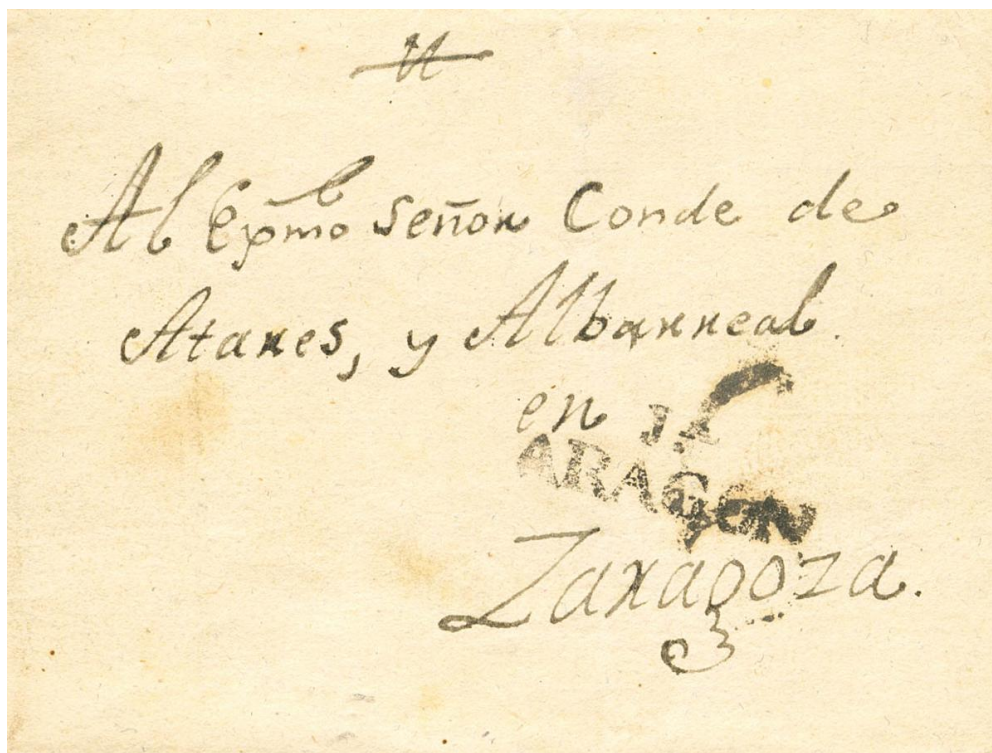 Al Exmo señor Conde de
Atares, y Albarreal.
en
ARAGON
Zaragoza.